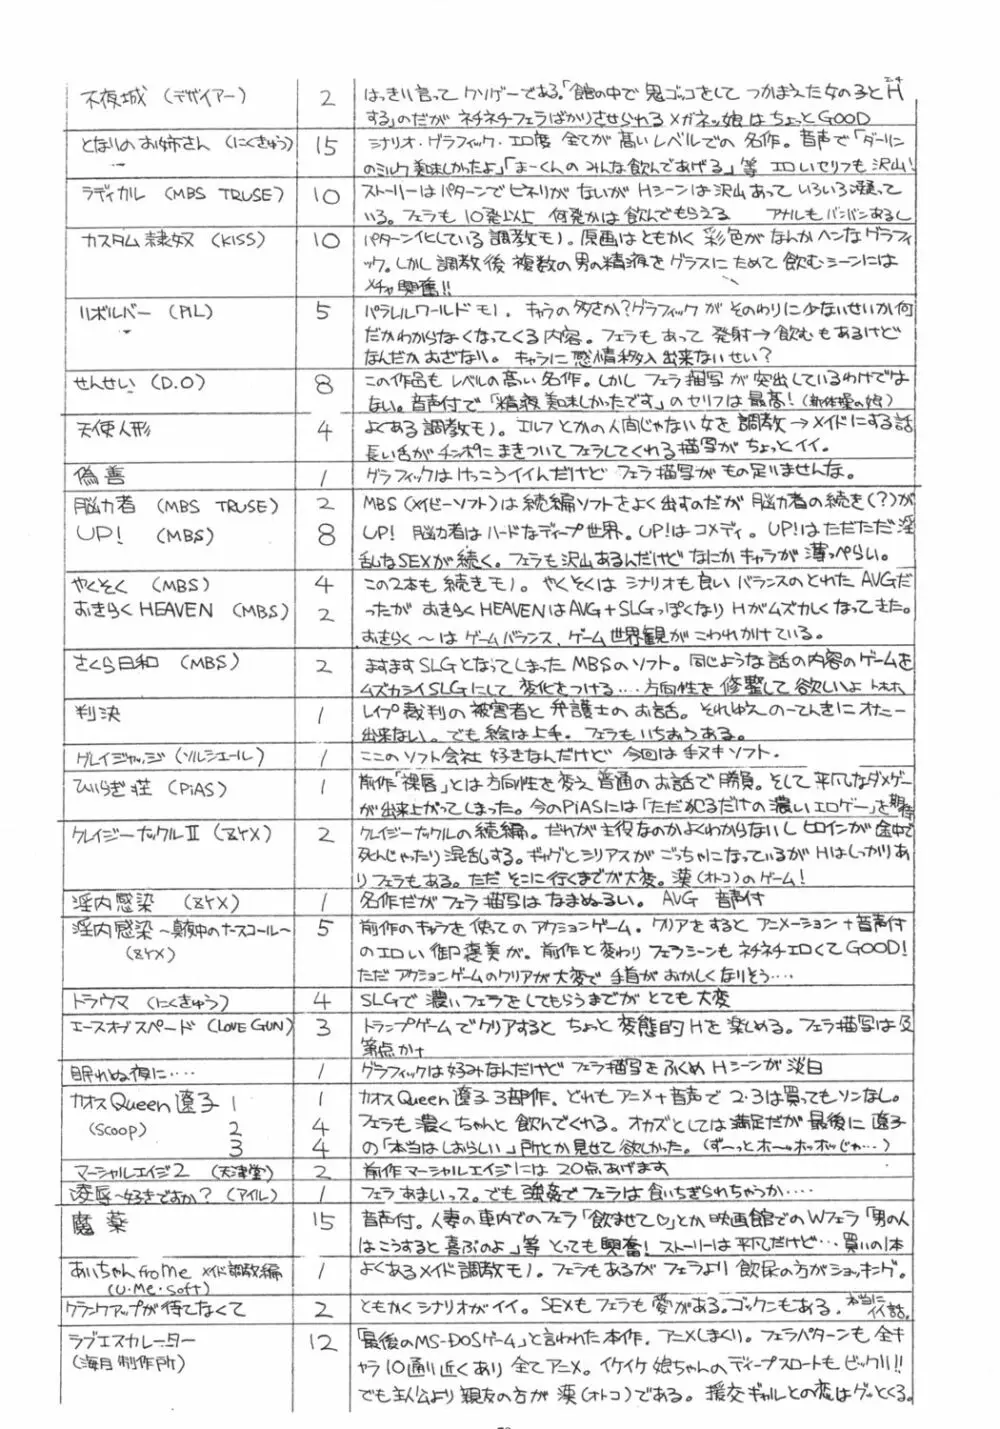 不夜城 (デザイアー) 2 はっきり言ってクソゲーである。「館の中で鬼ゴッコをしてつかまえた女の子とH
する」のだがネチネチフェラばかりさせられる メガネッ娘はちょっとGOOD
となりのお姉さん (にくきゅう) 15 シナリオ・グラフィック・エロ度 全てが高いレベルでの名作。音声で「ダーリン
のミルク美味しかったよ」「まーくんのみんな飲んであげる」等 エロいセリフも沢山!
ラディカル (MBS TRUSE) 10 ストーリーはパターンでヒネリがないがHシーンは沢山あっていろいろ凝って
いる。フェラも10発以上 何発かは飲んでもらえる アナルもバンバンあるし
カスタム隷奴 (KISS) 10 パターン化している調教モノ。原画はともかく彩色がなんかヘンなグラフィ
ック。しかし調教後複数の男の精液をグラスにためて飲むシーンには
メチャ興奮!!
リボルバー (PIL) 5 パラレルワールドモノ。キャラの多さか?グラフィックがそのわりに少ないせいか何
だかわからなくなってくる内容。フェラもあって発射→飲むもあるけど
なんだかおざなり。キャラに感情移入出来ないせい?
せんせい (D.O) 8 この作品もレベルの高い名作。しかしフェラ描写が突出しているわけでは
ない。音声付で「精液美味しかったです」のセリフは最高!(新体操の娘)
天使人形 4 よくある調教モノ。エルフとかの人間じゃない女を調教→メイドにする話
長い舌がチンポにまきついてフェラしてくれる描写がちょっとイイ。
偽善 1 グラフィックはけっこうイイんだけどフェラ描写がもの足りませんな。
脳力者 (MBS TRUSE) 2 MBS(メイビーソフト)は続編ソフトをよく出すのだが脳力者の続き(?)が
UP! (MBS) 8 UP! 脳力者はハードなディープ世界。UP!はコメディ。UP!はただただ淫
乱なSEXが続く。フェラも沢山あるんだけどなにかキャラが薄っぺらい。
やくそく (MBS) 4 この2本も続きモノ。やくそくはシナリオも良いバランスのとれたAVGだ
おきらくHEAVEN (MBS) 2 ったがおきらくHEAVENはAVG+SLGっぽくなりHがムズカしくなってきた。
おきらく~はゲームバランス、ゲーム世界観がこわれかけている。
さくら日和 (MBS) 2 ますますSLGとなってしまったMBSのソフト。同じような話の内容のゲームを
ムズカライSLGにして変化をつける‥‥方向性を修整して欲しいよ トホホ
判決 1 レイプ裁判の被害者と弁護士のお話。それゆえのーてんきにオナニー
出来ない。でも絵は上手。フェラもいちおうある。
グレイジャッジ (ソルシエール) 1 ここのソフト会社好きなんだけど今回は手ヌキソフト.
ひいらぎ荘 (PiAS) 1 前作「裸唇」とは方向性を変え普通のお話で勝負。そして平凡なダメゲー
が出来上がってしまった。今のPiASには「ただ犯るだけの濃いエロゲー」を期待
クレイジーナックルⅡ (ZYX) 2 クレイジーナックルの続編。だれが主役なのかよくわからないしヒロインが途中で
死んじゃったり混乱する。ギャグとシリアスがごっちゃになっているがHはしっかりあ
りフェラもある。ただそこに行くまでが大変。漢(オトコ)のゲーム!
淫内感染 (ZYX) 1 名作だがフェラ描写はなまぬるい。AVG 音声付
淫内感染~真夜中のナースコール~ 5 前作のキャラを使ってのアクションゲーム。クリアをするとアニメーション+音声付
(ZYX) のエロい御褒美が。前作と変わりフェラシーンもネチネチエロくてGOOD!
ただアクションゲームのクリアが大変で手首がおかしくなりそう‥‥
トラウマ (にくきゅう) 4 SLGで濃いフェラをしてもらうまでがとても大変
エースオブスペード (LOVE GUN) 3 トランプゲームでクリアするとちょっと変態的Hを楽しめる。フェラ描写は及
第点かナ
眠れぬ夜に‥‥ 1 グラフィックは好みなんだけどフェラ描写をふくめHシーンが淡白
カオスQueen遼子 1 1 カオスQueen遼子3部作。どれもアニメ+音声で2・3は買ってもソンなし。
(SCOOP) 2 4 フェラも濃くちゃんと飲んでくれる。オカズとしては満足だが最後に遼子
3 4 の「本当はしおらしい」所とか見せて欲しかった。(ず~っとホ~ッホッホッじゃ‥‥)
マーシャルエイジ2 (天津堂) 2 前作マーシャルエイジには20点あげます
凌辱~好きですか? (アイル) 1 フェラあまいっス。でも強姦でフェラは食いちぎられちゃうか‥‥
魔薬 15 音声付。人妻の車内でのフェラ「飲ませて♡」とか映画館でのWフェラ「男の人
はこうすると喜ぶのよ」等とっても興奮!ストーリーは平凡だけど‥‥買いの1本
あいちゃんfroMe メイド調教編 1 よくあるメイド調教モノ。フェラもあるがフェラより飲尿の方がショッキング。
(U・Me・Soft)
クランクアップが待てなくて 2 ともかくシナリオがイイ。SEXもフェラも愛がある。ゴックンもある。本当にイイ話。
ラブエスカレーター 12 「最後のMS-DOSゲーム」と言われた本作。アニメしまくり。フェラパターンも全キ
(海月制作所) ャラ10通り近くあり全てアニメ。イケイケ娘ちゃんのディープスロートもビックリ!!
でも主人公より親友の方が漢(オトコ)である。援交ギャルとの恋はグッとくる。